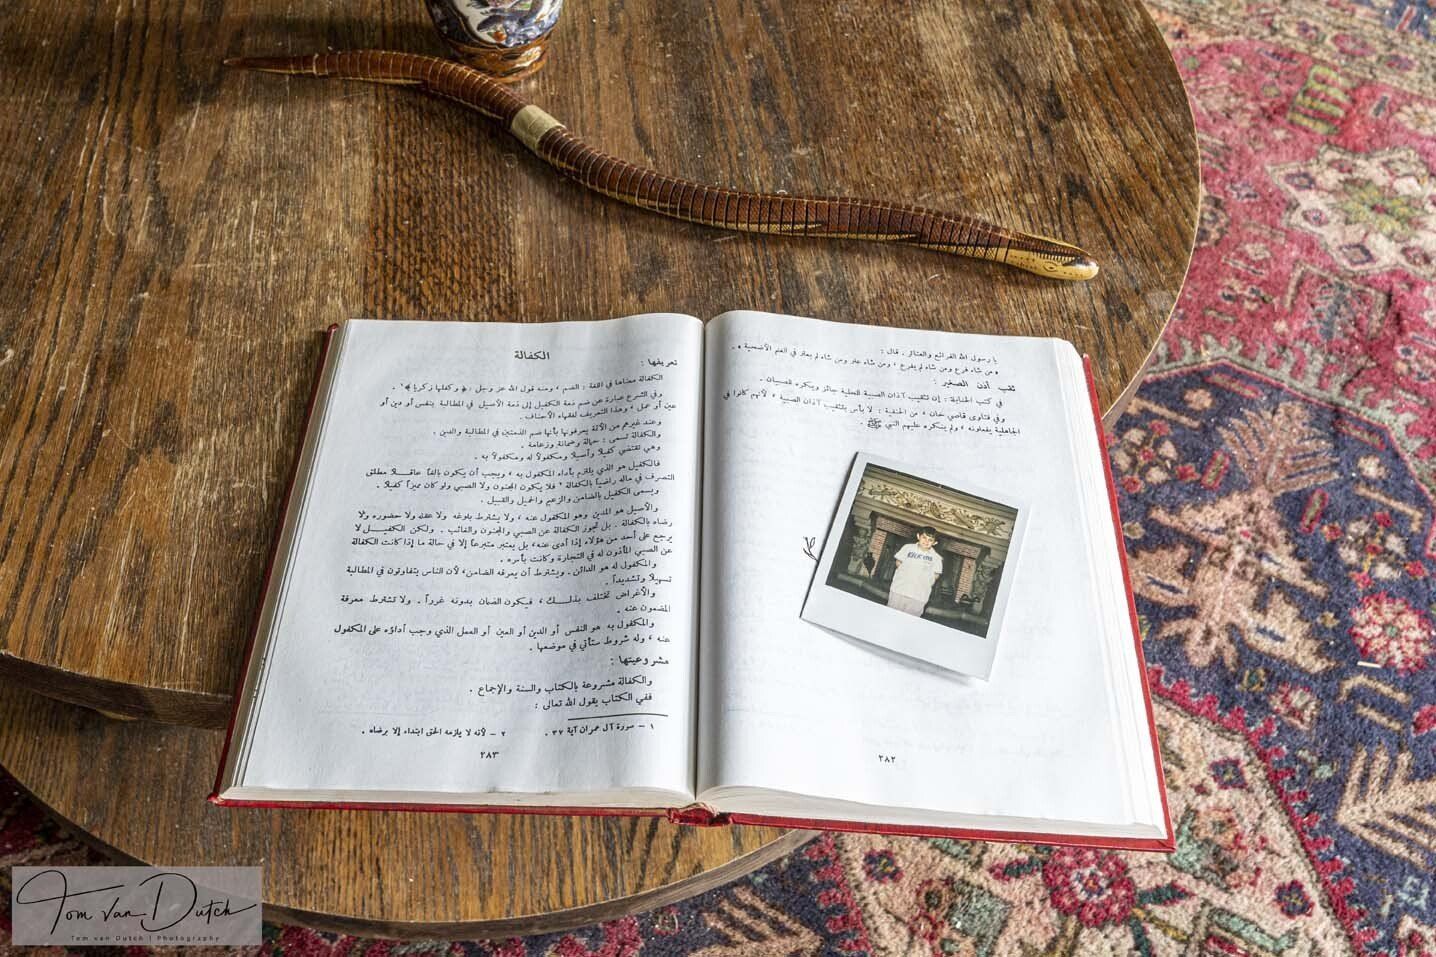 يا رسول الله الفرائع والعتائر . قال :
« من شاء فرع ومن شاء لم يفرع ، ومن شاء عتر ومن شاء لم يعتر في الغنم الأضحية » .
ثقب أذن الصغير :
في كتب الحنابلة : إن تثقيب آذان الصبية للحلية جائز ويكره للصبيان .
وفي فتاوى قاضي خان ، من الحنفية : لا بأس بتثقيب آذان الصبية ، لأنهم كانوا في
الجاهلية يفعلونه ، ولم ينكره عليهم النبي ﷺ .
٢٨٢
الكفالة
تعريفها :
الكفالة معناها في اللغة : الضم ، ومنه قول الله عز وجل : ﴿ وكفلها زكريا ﴾ ١ .
وفي الشرع عبارة عن ضم ذمة الكفيل إلى ذمة الأصيل في المطالبة بنفس أو دين أو
عين أو عمل ، وهذا التعريف لفقهاء الأحناف .
وعند غيرهم من الأئمة يعرفونها بأنها ضم الذمتين في المطالبة والدين .
والكفالة تسمى : حمالة وضمانة وزعامة .
وهي تقتضي كفيلا وأصيلا ومكفولا له ومكفولا به .
فالكفيل هو الذي يلتزم بأداء المكفول به ، ويجب أن يكون بالغا عاقــلا مطلق
التصرف في ماله راضيا بالكفالة ٢ فلا يكون المجنون ولا الصبي ولو كان مميزا كفيلا .
ويسمى الكفيل بالضامن والزعيم والحميل والقبيل .
والأصيل هو المدين وهو المكفول عنه ، ولا يشترط بلوغه ولا عقله ولا حضوره ولا
رضاه بالكفالة . بل تجوز الكفالة عن الصبي والمجنون والغائب . ولكن الكفيــل لا
يرجع على أحد من هؤلاء إذا أدى عنه ، بل يعتبر متبرعا إلا في حالة ما إذا كانت الكفالة
عن الصبي المأذون له في التجارة وكانت بأمره .
والمكفول له هو الدائن . ويشترط أن يعرفه الضامن ، لأن الناس يتفاوتون في المطالبة
تسهيلا وتشديدا .
والأغراض تختلف بذلــك ، فيكون الضمان بدونه غررا . ولا تشترط معرفة
المضمون عنه .
والمكفول به هو النفس أو الدين أو العين أو العمل الذي وجب أداؤه على المكفول
عنه ، وله شروط ستأتي في موضعها .
مشروعيتها :
والكفالة مشروعة بالكتاب والسنة والإجماع .
ففي الكتاب يقول الله تعالى :
١ – سورة آل عمران آية ٣٧ . ٢ – لأنه لا يلزمه الحق ابتداء إلا برضاه .
٢٨٣
Tom Van Dutch
Tom van Dutch | Photography